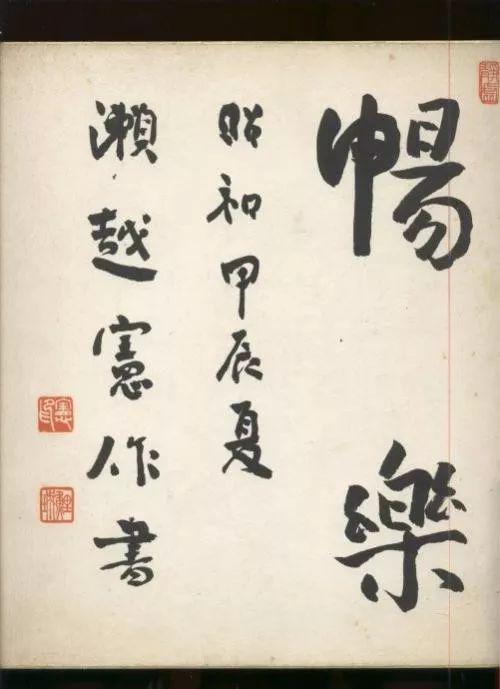 暢樂
昭和甲辰夏
瀬越憲作書